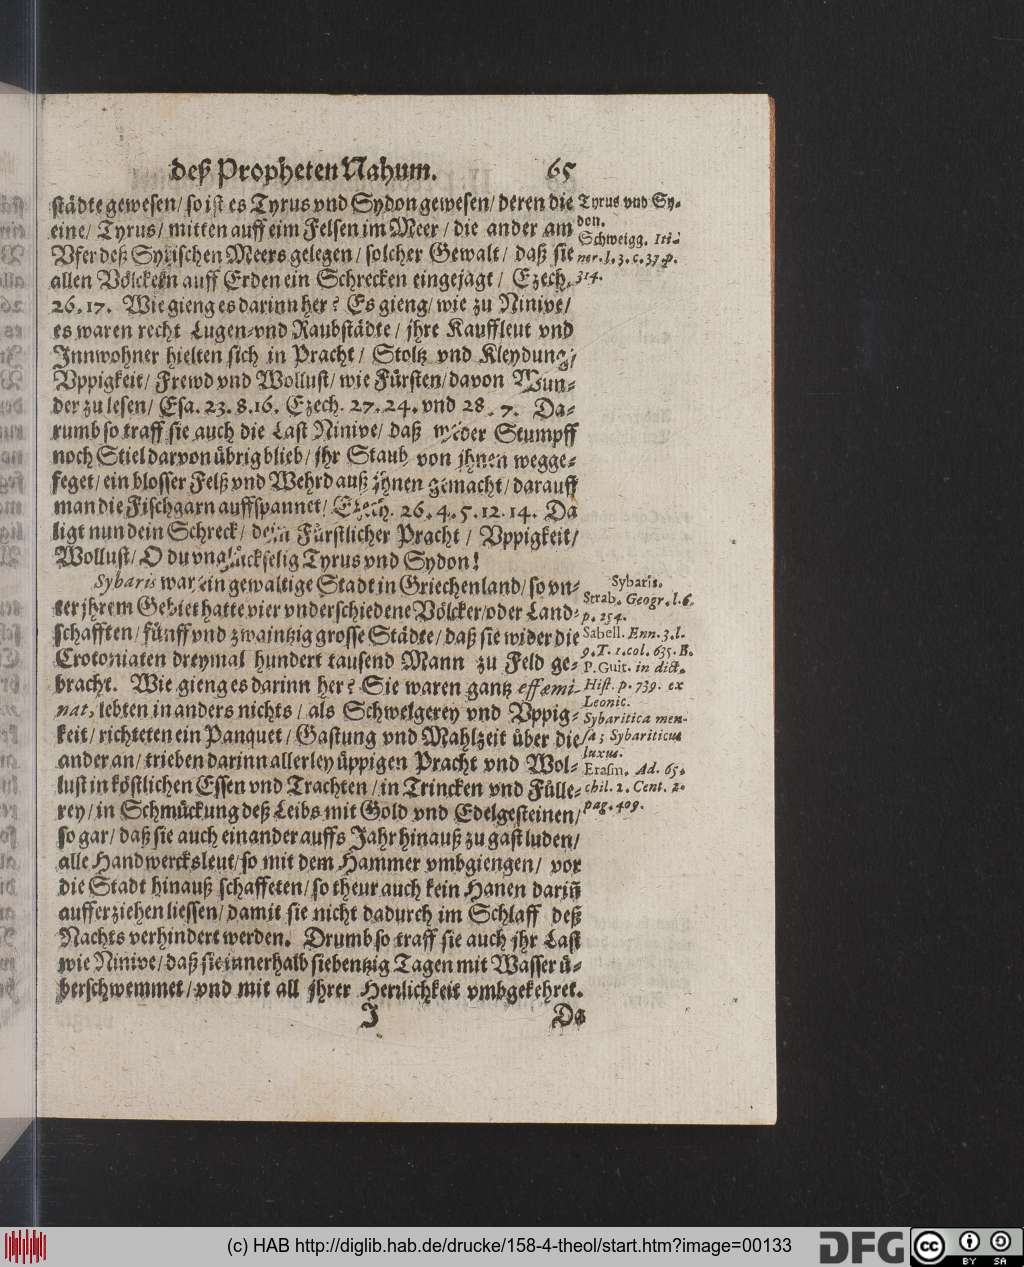 deß Propheten Nahum. 65
städte gewesen/ so ist es Tyrus vnd Sydon gewesen/ deren die
eine/ Tyrus/ mitten auff eim Felsen im Meer/ die ander am
Vfer deß Syrischen Meers gelegen/ solcher Gewalt/ daß sie
allen Völckern auff Erden ein Schrecken eingejagt/ Ezech.
26. 17. Wie gieng es darinn her? Es gieng/ wie zu Ninive/
es waren recht Lugen- vnd Raubstädte/ jhre Kauffleut vnd
Innwohner hielten sich in Pracht/ Stoltz vnd Kleydung/
Vppigkeit/ Frewd vnd Wollust/ wie Fürsten/ davon Wun-
der zu lesen/ Esa. 23. 8. 16. Ezech. 27. 24. vnd 28. 7. Da-
rumb so traff sie auch die Last Ninive/ daß weder Stumpff
noch Stiel darvon übrig blieb/ jhr Staub von jhnen wegge-
feget/ ein blosser Felß vnd Wehrd auß jhnen gemacht/ darauff
man die Fischgarn auffspannet/ Ezech. 26. 4. 5. 12. 14. Da
ligt nun dein Schreck/ dein Fürstlicher Pracht/ Vppigkeit/
Wollust/ O du vnglückselig Tyrus vnd Sydon!
Sybaris war ein gewaltige Stadt in Griechenland/ so vn-
ter jhrem Gebiet hatte vier vnderschiedene Völcker/ oder Land-
schafften/ fünff vnd zwaintzig grosse Städte/ daß sie wider die
Crotoniaten dreymal hundert tausend Mann zu Feld ge-
bracht. Wie gieng es darinn her? Sie waren gantz effœmi-
nat, lebten in anders nichts/ als Schwelgerey vnd Vppig-
keit/ richteten ein Panquet/ Gastung vnd Mahlzeit über die
ander an/ trieben darinn allerley üppigen Pracht vnd Wol-
lust in köstlichen Essen vnd Trachten/ in Trincken vnd Fülle-
rey/ in Schmückung deß Leibs mit Gold vnd Edelgesteinen/
so gar/ daß sie auch einander auffs Jahr hinauß zu gast luden/
alle Handwercksleut/ so mit dem Hammer vmbgiengen/ vor
die Stadt hinauß schaffeten/ so theur auch kein Hanen dariñ
aufferziehen liessen/ damit sie nicht dadurch im Schlaff deß
Nachts verhindert werden. Drumb so traff sie auch jhr Last
wie Ninive/ daß sie innerhalb siebentzig Tagen mit Wasser ü-
berschwemmet/ vnd mit all jhrer Herrlichkeit vmbgekehret.
J Da
Tyrus vnd Sy-
don.
Schweigg. Iti-
ner. l. 3. c. 37. p.
314.
Sybaris.
Strab. Geogr. l. 6.
p. 254.
Sabell. Enn. 3. l.
9. T. 1. col. 635. B.
P. Guit. in dict.
Hist. p. 739. ex
Leonic.
Sybaritica men-
sa; Sybariticus
luxus.
Erasm. Ad. 65.
chil. 2. Cent. 2.
pag. 409.
(c) HAB http://diglib.hab.de/drucke/158-4-theol/start.htm?image=00133
DFG
cc BY SA